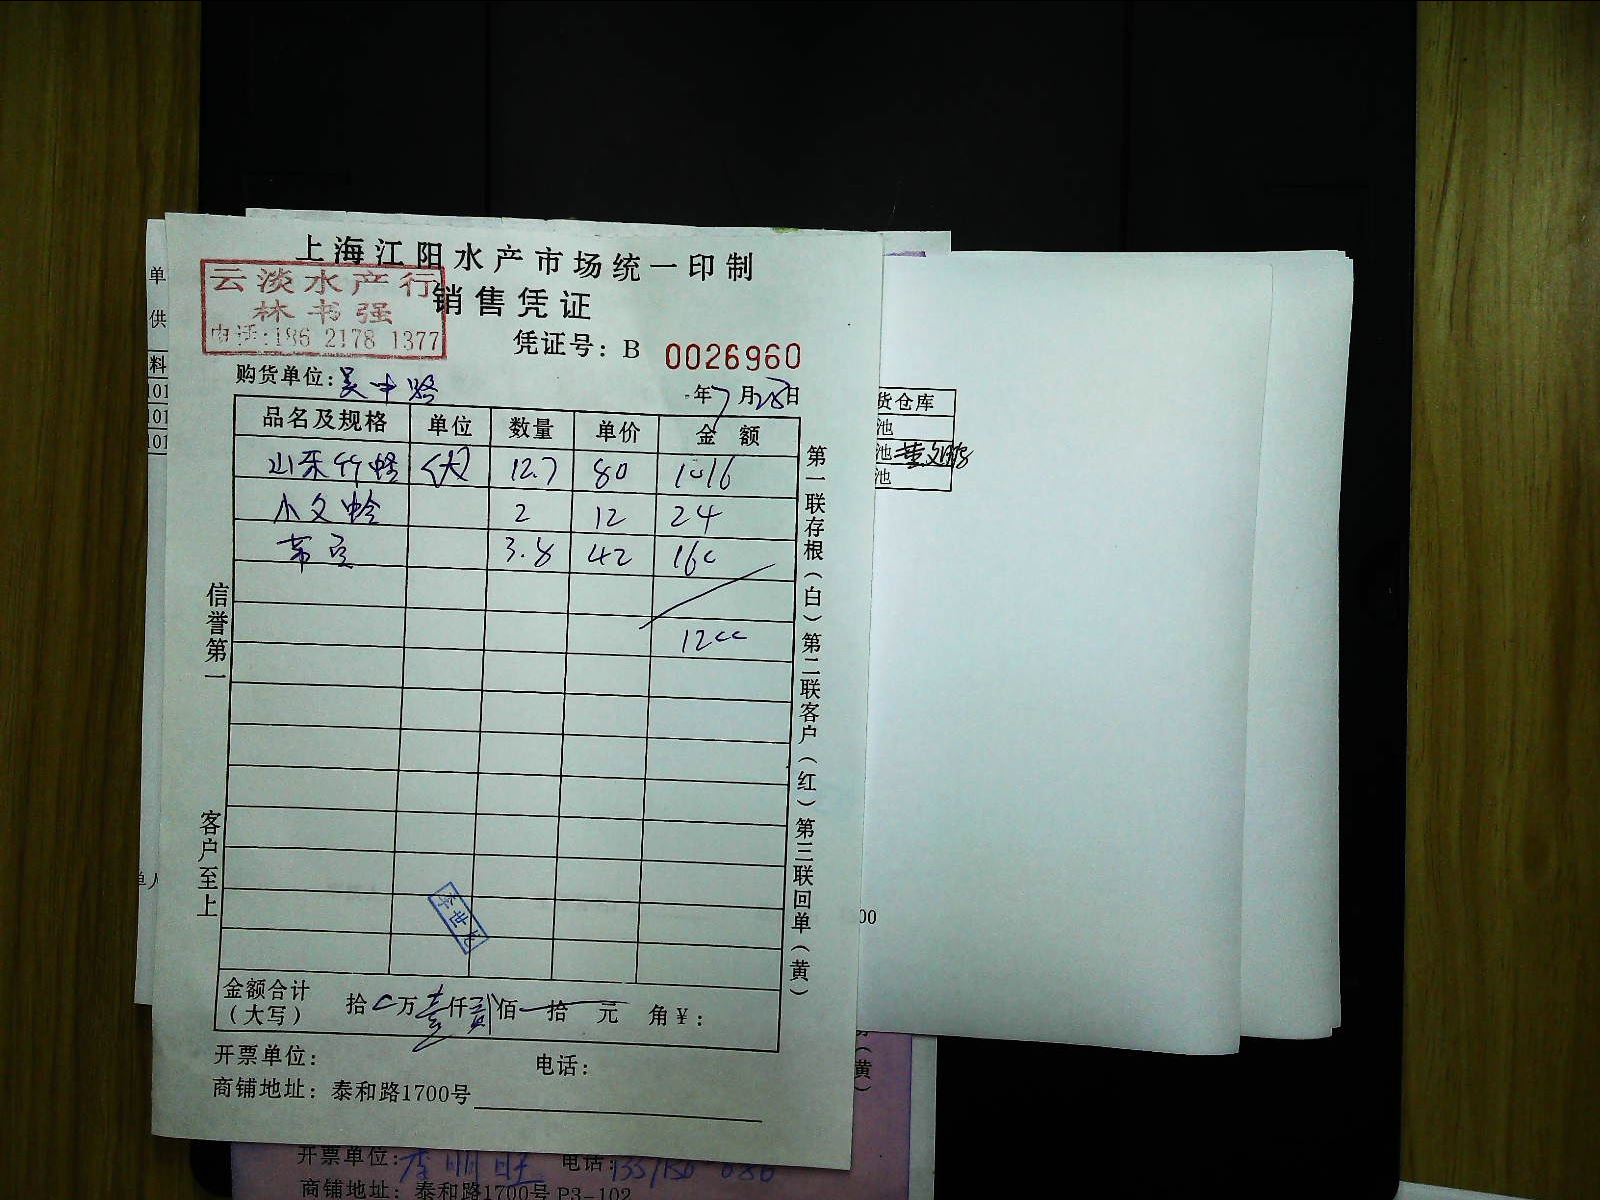 上海江阳水产市场统一印制
云淡水产行
销售凭证
林书强
电话:186 2178 1377
凭证号：B 0026960
购货单位:吴中路
年7月28日
品名及规格 单位 数量 单价 金额
山东竹蛏 (大) 12.7 80 1016
小文蛤 2 12 24
3.8 42 160
1200
第一联存根(白)第二联客户(红)第三联回单(黄)
信誉第一
客户至上
金额合计
(大写)
拾 万壹仟贰佰 拾 元 角¥:
开票单位: 电话:
商铺地址: 泰和路1700号
单
供
料
101
101
101
单人
货仓库
池
池
池
00
(黄)
开票单位: 电话:
商铺地址: 泰和路1700号 P3-102